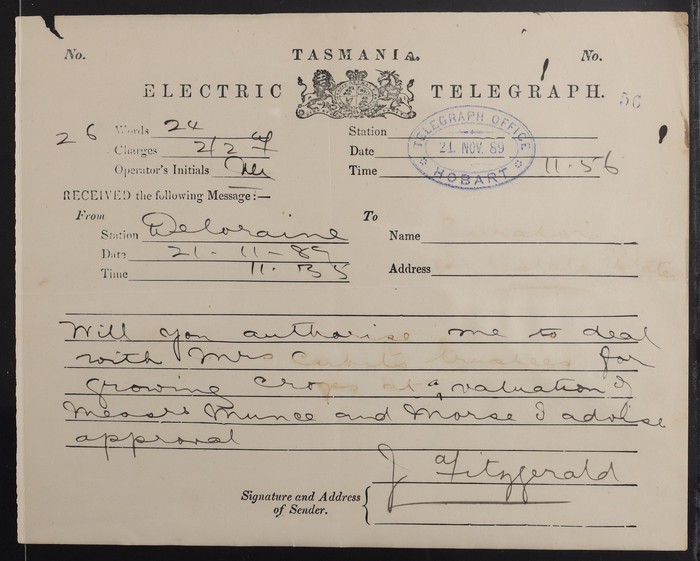 No. TASMANIA. No.
ELECTRIC TELEGRAPH. 56
26 Words 24 Station
Charges 2/2 Date
Operator's Initials Time 11.56
TELEGRAPH OFFICE
21 NOV. 89
HOBART
RECEIVED the following Message:—
From To
Station Deloraine Name
Date 21-11-89
Time 11.35 Address
Will you authorise me to deal
with Mrs trustees for
growing crops at a valuation of
Messrs Munce and Morse I advise
approval
J Fitzgerald
Signature and Address
of Sender.